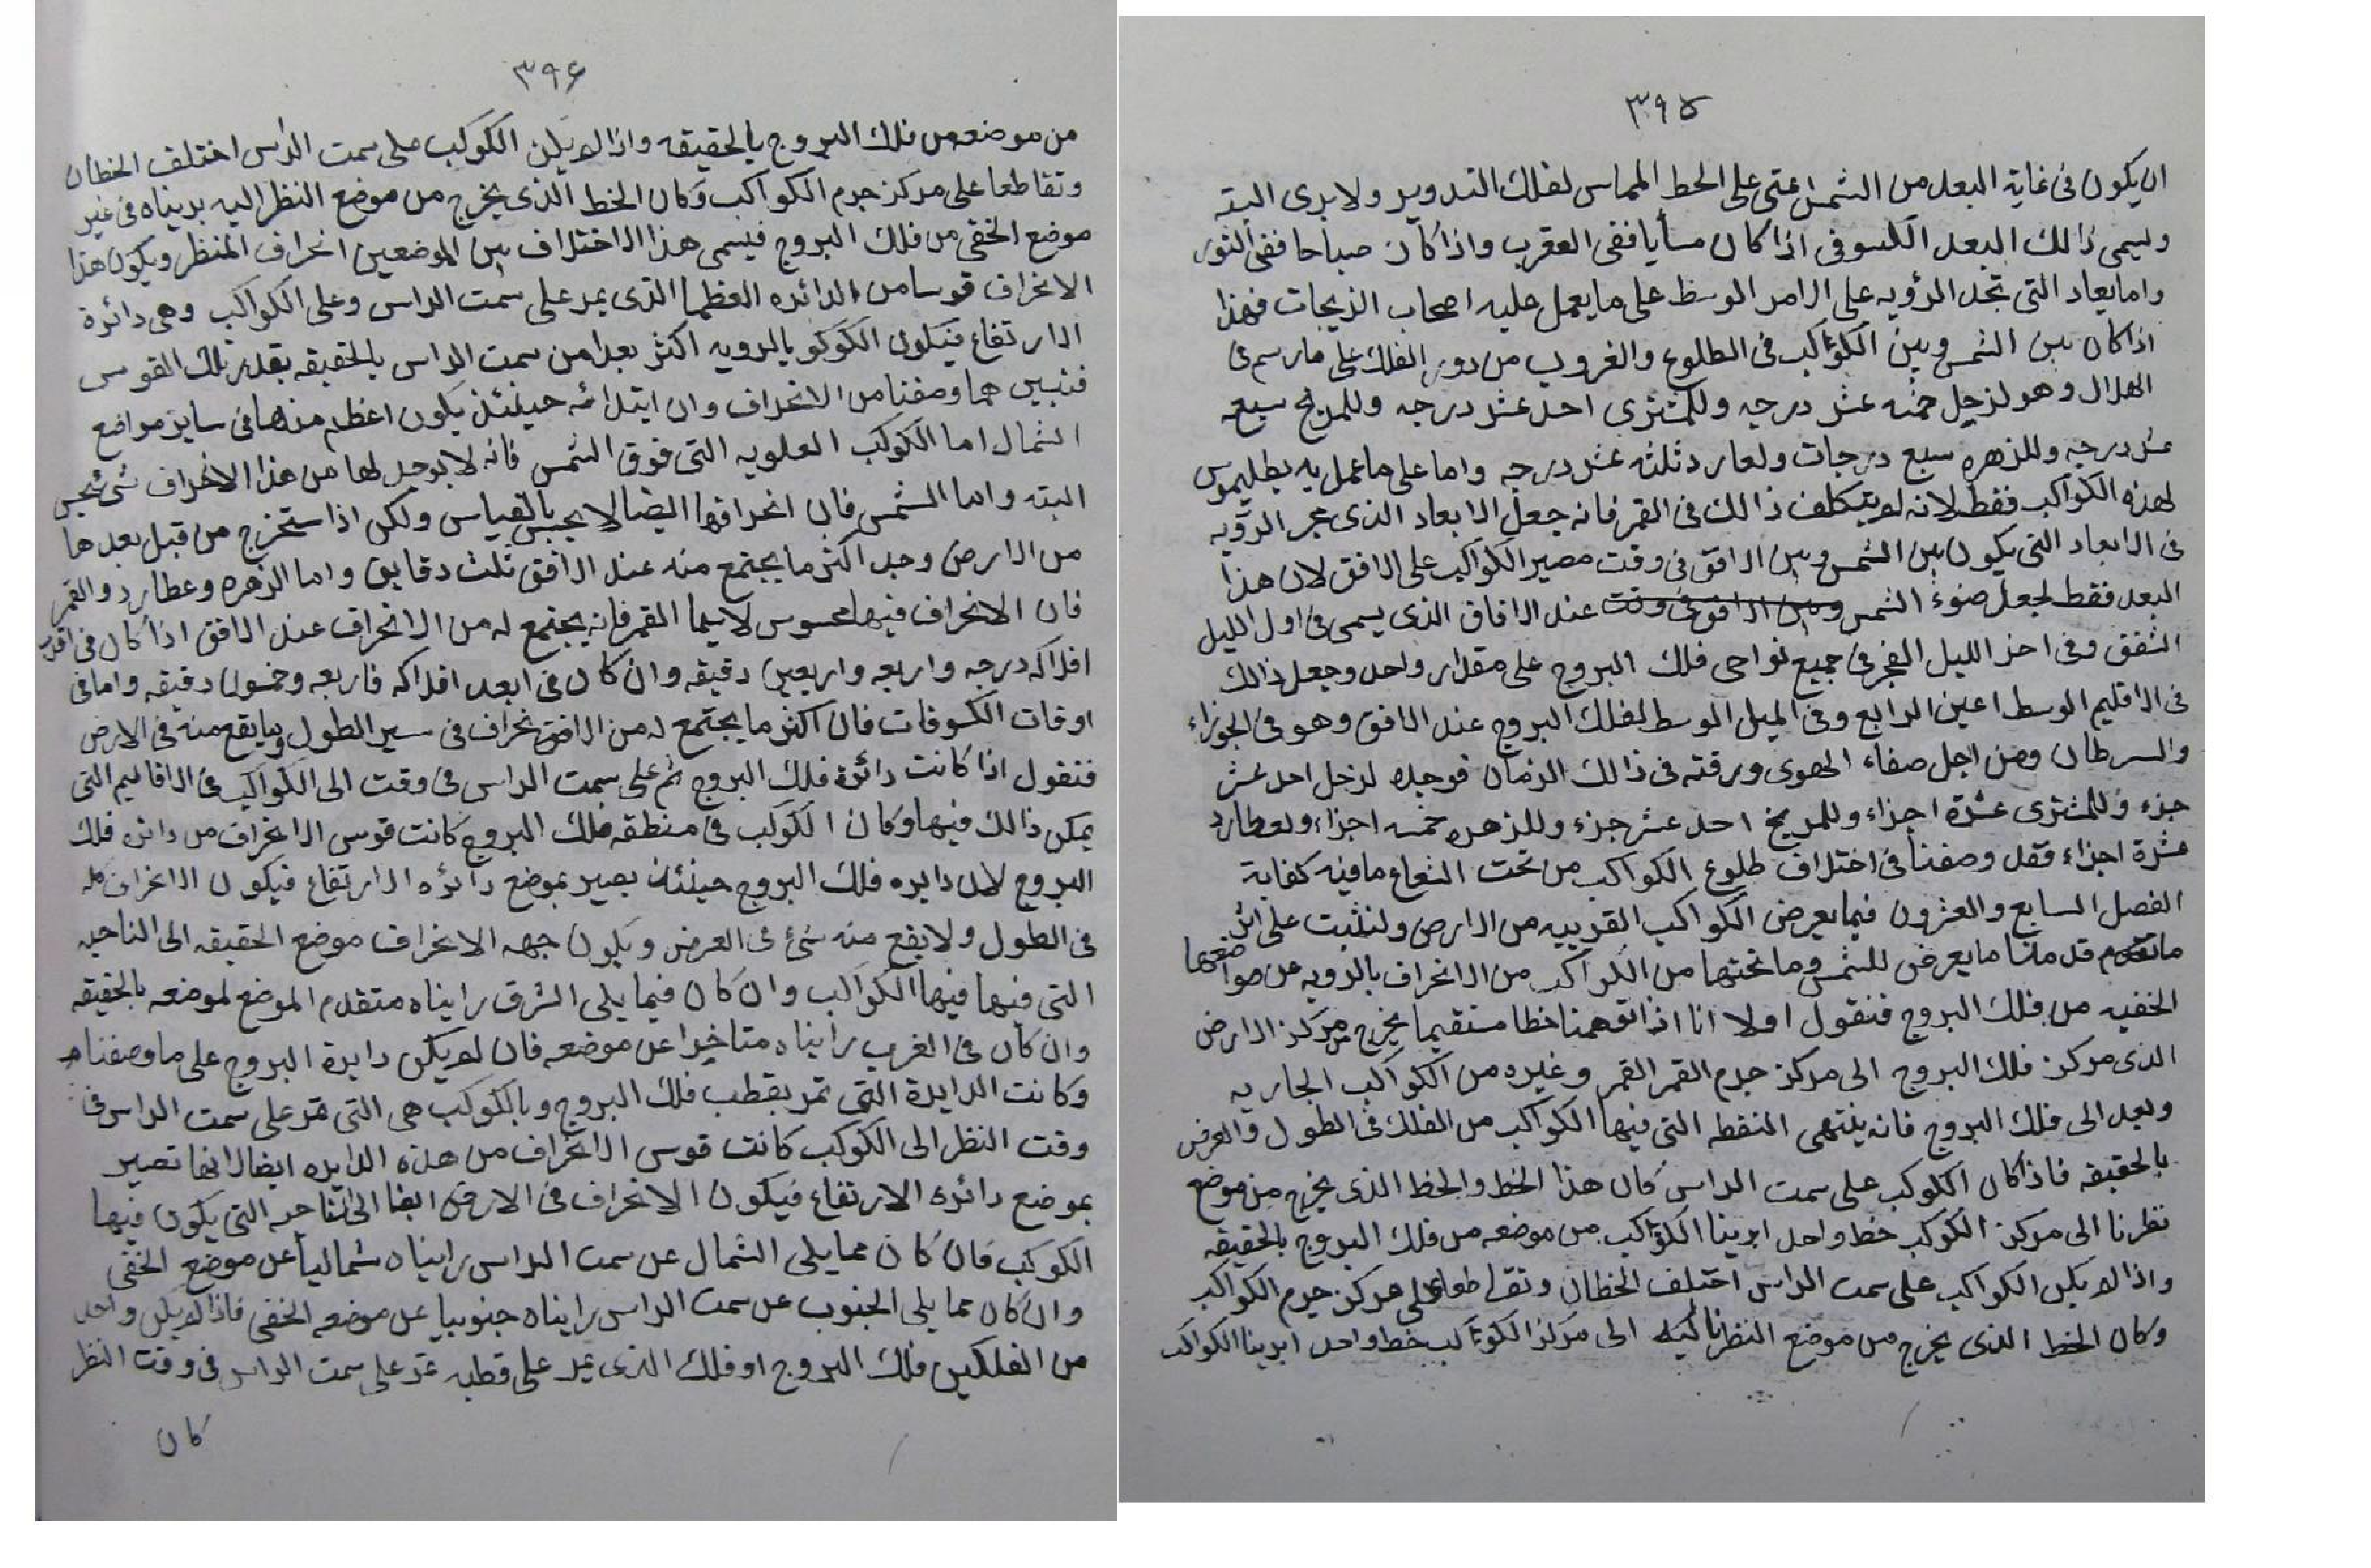 ٣٩٥
ان يكون فى غاية البعد من الشمس اعنى على الخط المماس لفلك التدوير ولا يرى البته
وليسمى ذالك البعد الكسوفى اذا كان مسأيا ففى العقرب واذا كان صباحا ففى الثور
واما يعاد التى تجد الرؤيه على الامر الوسط على ما يعمل عليه اصحاب الزيجات فهذا
اذا كان بين الشمس وبين الكوٵكب فى الطلوع والغروب من دور الفلك على ما رسم فى
الهلال وهو لزحل خمسه عشر درجه وللمشترى احد عشر درجه وللمريخ سبعه
عشر درجه وللزهره سبع درجات ولعارد ثلثه عشر درجه واما على ما عمل به بطليموس
لهذه الكواكب فقط لانه لم يتكلف ذالك فى القمر فانه جعل الابعاد الذى عجر الرؤيه
فى الابعاد التى يكون بين الشمس وبين الافق فى وقت مصير الكواكب على الافق لان هذا
البعد فقط لجعل ضوء الشمس وبين الافق فى وقت عند الافاق الذى يسمى فى اول الليل
الشفق وفى اخذ الليل الفجر فى جميع نواحى فلك البروج على مقدار واحد وجعل ذالك
فى الاقليم الوسط اعين الرابع وفى الميل الوسط لفلك البروج عند الافق وهو فى الجوزاء
والسرطان ومن اجل صفاء الهوى ورقته فى ذالك الزمان فوجده لزحل احد عشر
جزء وللمشترى عشرة اجزاء وللمريخ احد عشر جزء وللزهره خمسه اجزاء ولعطارد
عشرة اجزاء فقد وصفنا فى اختلاف طلوع الكواكب من تحت الشعاع ما فيه كفاية
الفصل السابع والعشرون فيما يعرض الكواكب القريبه من الارض ولنثبت على اثر
ما تقدم قد منا ما يعرض للشمس وما تحتها من الكواكب من الانحراف بالرويه عن مواضعها
الخفيه من فلك البروج فنقول اولا انا اذا توهمنا خطا مستقيما يخرج من مركز الارض
الذى مركز فلك البروج الى مركز جرم القمر القمر وغيره من الكواكب الجاريه
وبعد الى فلك البروج فانه ينتهى النقطه التى فيها الكواكب من الفلك فى الطول والعرض
بالحقيقه فاذا كان الكوكب على سمت الراس كان هذا الخط والخط الذى يخرج من موضع
نظرنا الى مركز الكوكب خط واحد ابرينا الكوٵكب من موضعه من فلك البروج بالحقيقه
واذا لم يكن الكواكب على سمت الراس اختلف الخطان وتقاطعا على مركز جرم الكواكب
وكان الخط الذى يخرج من موضع النظرنا ليه الى مركز الكوٵكب خط واحد ابرينا الكواكب
٣٩٤
من موضعه من فلك البروج بالحقيقه واذا لم يكن الكوكب على سمت الراس اختلف الخطان
وتقاطعا على مركز جرم الكواكب وكان الخط الذى يخرج من موضع النظر اليه بريناه فى غير
موضع الخفى من فلك البروج فيسمى هذا الاختلاف بين الموضعين انحراف المنظر ويكون هذا
الانحراف قوسا من الدائره العظما الذى يمر على سمت الراس وعلى الكواكب وهى دائرة
الارتفاع فيكون الكوكو بالرويه اكثر بعدا من سمت الراس بالحقيقه بقدر تلك القوس
فتبين مما وصفنا من الانحراف وان ابتدائه حينئذ يكون اعظم منها فى ساير مواضع
الشمال اما الكوكب العلويه التى فوق الشمس فانه لا يوجد لها من هذا الانحراف شى يحس
البته واما الشمس فان انحرافها ايضا لا يحبس بالقياس ولكن اذا ستخرج من قبل بعدها
من الارض وجد اكثر ما يجتمع منه عند الافق ثلث دقايق واما الزهره وعطارد والقمر
فان الانحراف فيها محسوس لا سيما القمر فانه يجتمع له من الانحراف عند الافق اذا كان فى اقرب
افلاكه درجه واربعه واربعين دقيقه وان كان فى ابعد افلاكه فاربعه وخمسون دقيقه واما فى
اوقات الكسوفات فان اكثر ما يجتمع له من الافق نحراف فى سير الطول وما يقع منه فى الارض
فنقول اذا كانت دائرة فلك البروج ثم على سمت الراس فى وقت الى الكواكب فى الاقاليم التى
يمكن ذالك فيها وكان الكوكب فى منطقه فلك البروج كانت قوس الانحراف من دائره فلك
البروج لان دايره فلك البروج حينئذ بصير بموضع دائره الارتفاع فيكون الانحراف كله
فى الطول ولا يقع منه شئ فى العرض ويكون جهه الانحراف موضع الحقيقه الى الناحيه
التى فيها فيها الكواكب وان كان فيما يلى الشرق رايناه متقدم الموضع لموضعه بالحقيقه
وان كان فى الغرب رايناه متاخرا عن موضعه فان لم يكن دايرة البروج على ما وصفناه
وكانت الدايرة التى تمر بقطب فلك البروج وبالكوكب هى التى تمر على سمت الراس فى
وقت النظر الى الكوكب كانت قوس الانحراف من هذه الدايره ايضا لانها تصير
بموضع دائره الارتفاع فيكون الانحراف فى الارض ايضا الى الناحيه التى يكون فيها
الكوكب فان كان مما يلى الشمال عن سمت الراس رايناه شماليا عن موضع الخفى
وان كان مما يلى الجنوب عن سمت الراس رايناه جنوبيا عن موضعه الخفى فاذا لم يكن واحد
من الفلكين فلك البروج او فلك الذى يمر على قطبه تمر على سمت الراس فى وقت النظر
كان